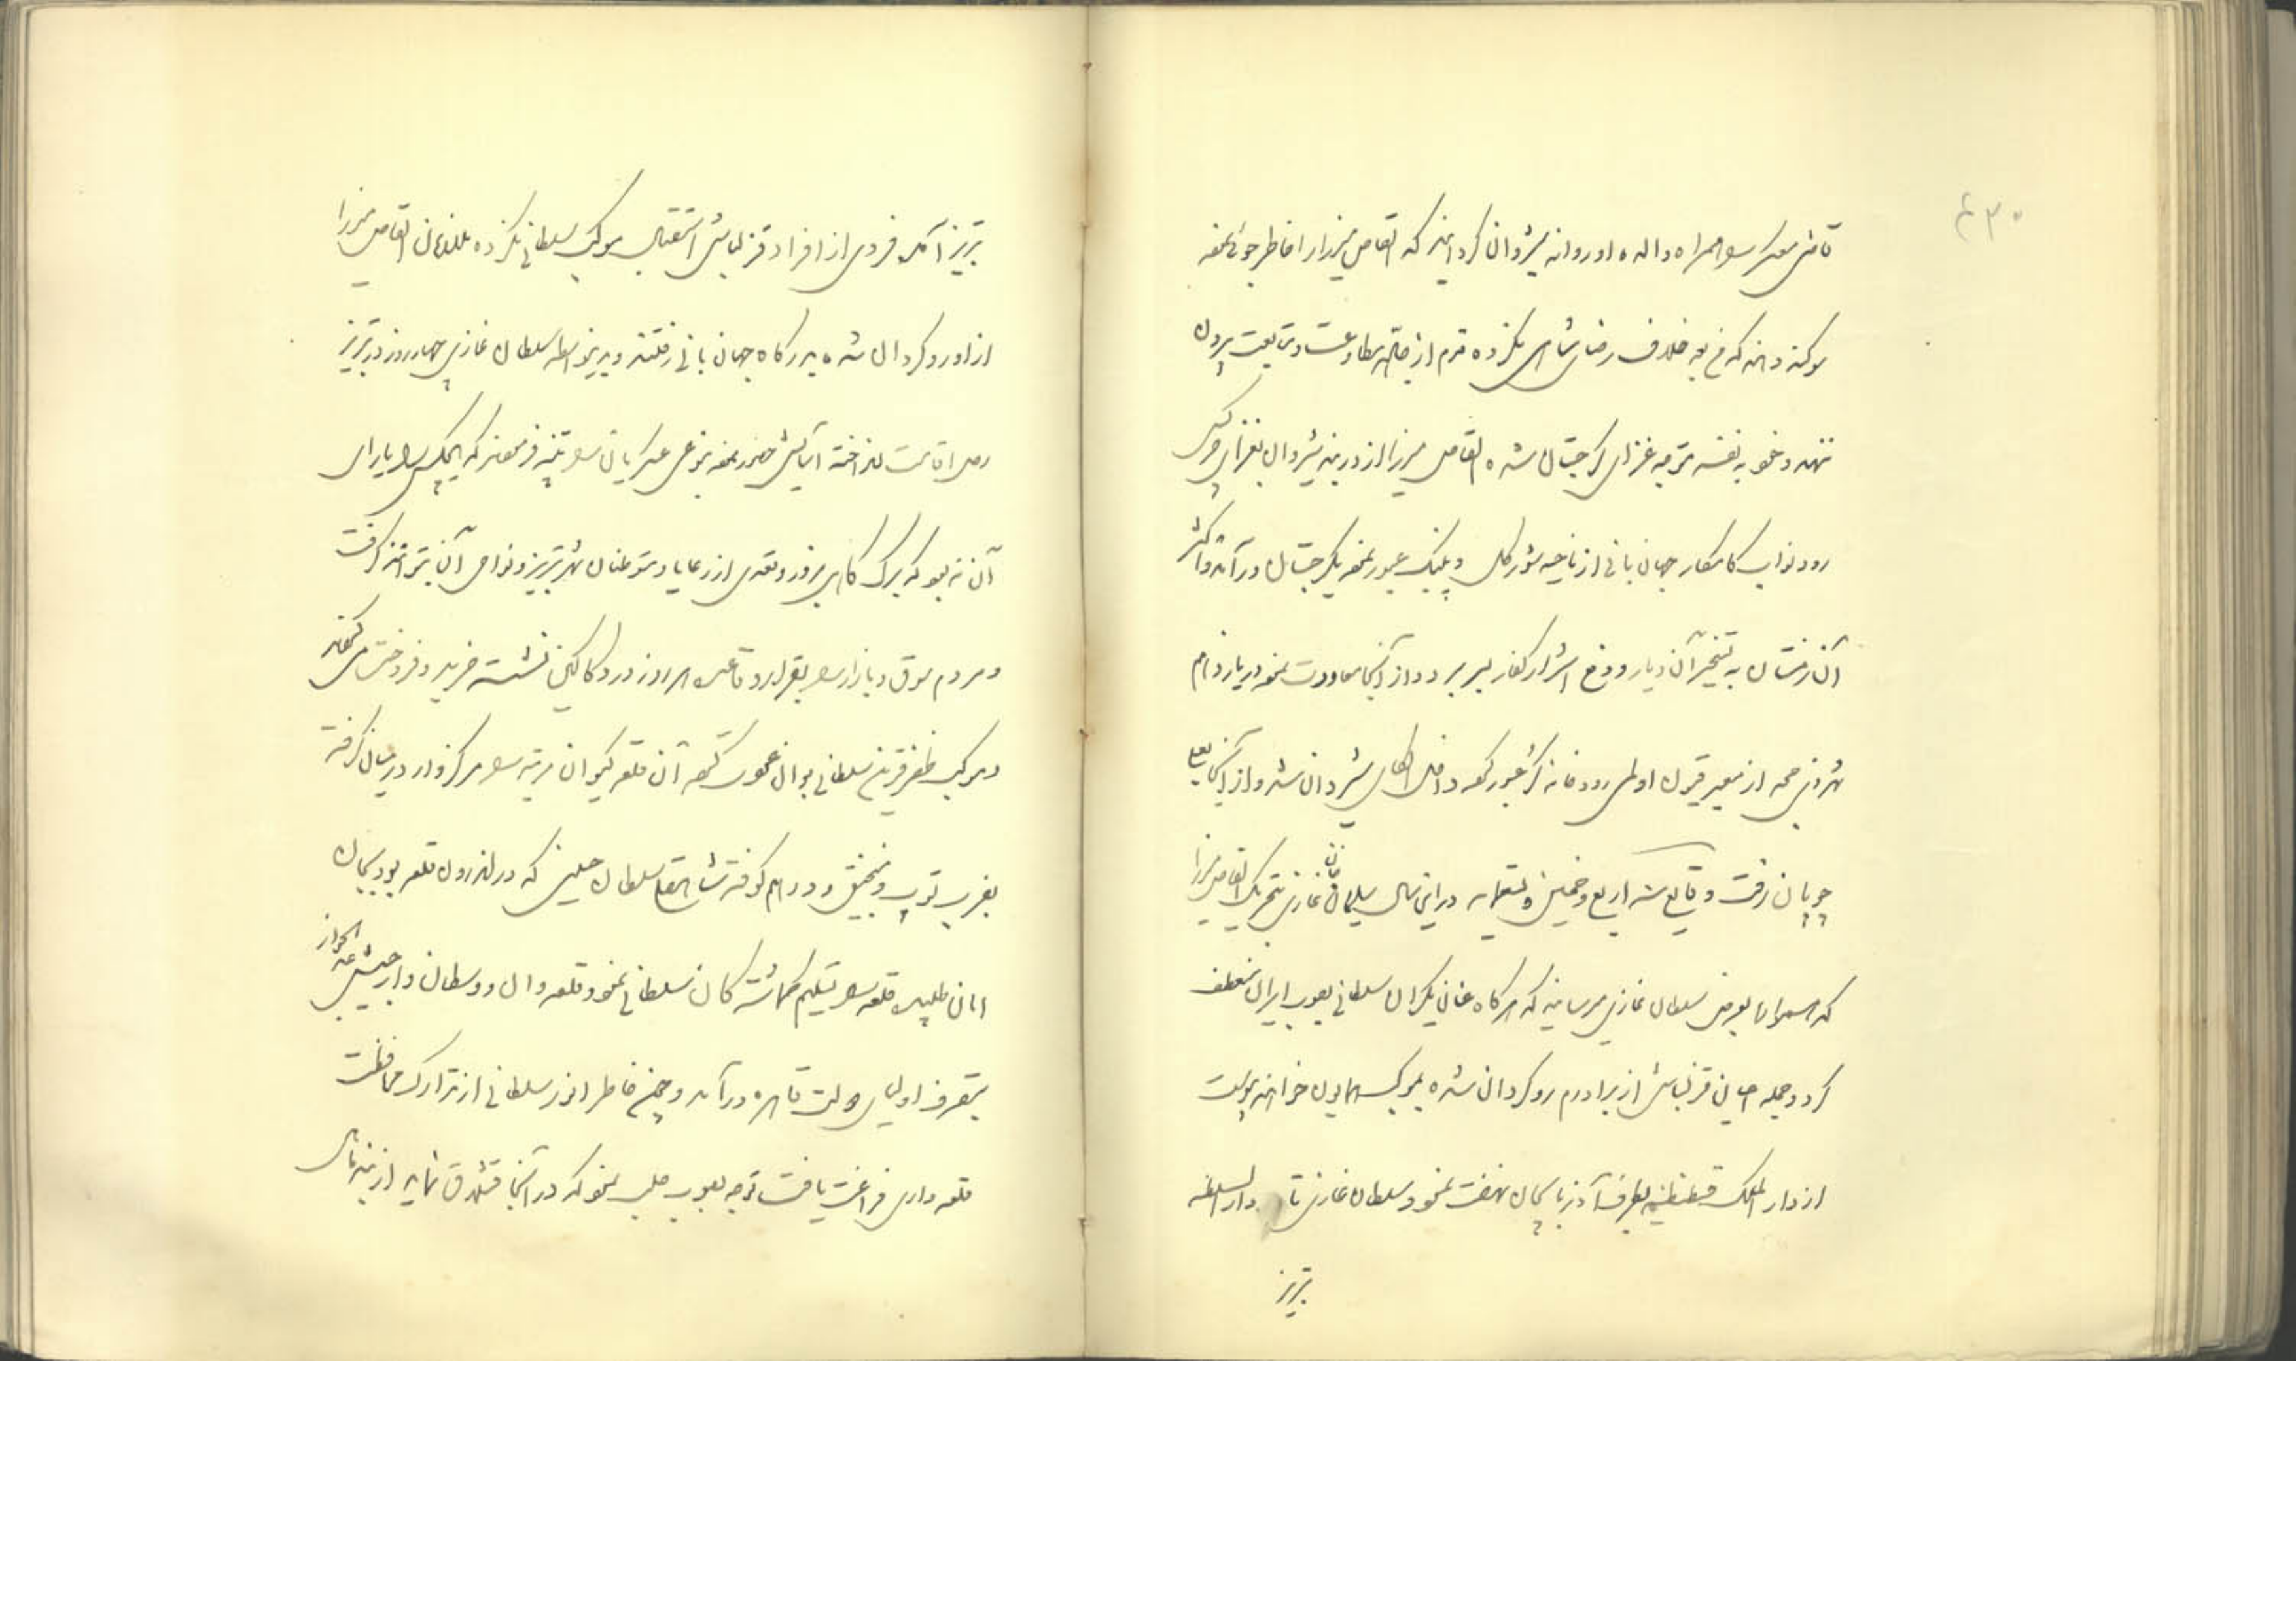 ۴۳۰
قاضی معسکر را همراه والده او روانه شیروان گردانیدند که القاص میرزا را خاطرجوئی نموده
سوگند دهند که من بعد خلاف رضای شاهی نکرده قدم از جاده مطاوعت و متابعت بیرون
ننهد و خود به نفسه متوجه غزای گرجستان شده القاص میرزا از دربند شیروان بغزای چرکس
رود نواب کامکار جهانبانی از ناحیه شوره گل و پلنک عبور نموده بگرجستان درآمد و اکثر
آن زمستان به تسخیر آن دیار و دفع اشرار کفار بسر برد و از آنجا معاودت نموده در یازدهم
شهر ذی حجه از معبر قیون اولمی رودخانه کر عبور کرده داخل الکای شیروان شد و از آنجا بقلعه
جوپان رفت وقایع سنه اربع و خمسین و تسعمایه در این سال سلیمان خان غازی بتحریک القاص میرزا
که همواره بعرض سلطان غازی میرسانید که هرگاه عنان یکران سلطانی بصوب ایران منعطف
گردد جمله اعیان قزلباش از برادرم روگردان شده بموکب همایون خواهند پیوست
از دارالملک قسطنطنیه بطرف آذربایجان نهضت نمود و سلطان غازی تا دارالسلطنه
تبریز
تبریز آمد فردی از افراد قزلباش استقبال موکب سلطانی نکرده ملازمان القاص میرزا
از او روگردان شده بدرگاه جهانبانی رفتند و بدینواسطه سلطان غازی چهار روز در تبریز
رحل اقامت انداخته آسایش حضور نموده بنوعی عسکریان را تنبیه فرمودند که هیچکس را یارای
آن نبود که برگ کاهی بزور و تعدی از رعایا و متوطنان شهر تبریز و نواحی آن توانند گرفت
و مردم سوق و بازار بقرار و قاعده هر روز در دکاکین نشسته خرید و فروخت می‌کردند
و موکب ظفر قرین سلطانی بوان عود کرده آن قلعه کیوان مرتبه را مرکزوار در میان گرفته
بضرب توپ و منجنیق در هم کوفتند شاهقلی سلطان حلیس که در اندرون قلعه بود بجان
امان طلبیده قلعه را تسلیم گماشته گان سلطانی نمود و قلعه وان و وسطان و ارجیش و عدالجواز
بتصرف اولیای دولت قاهره درآمد و چون خاطر انور سلطانی از تدارک محافظت
قلعه داری فراغت یافت توجه بصوب حلب نمود که در آنجا قشلاق نماید از ینه بال